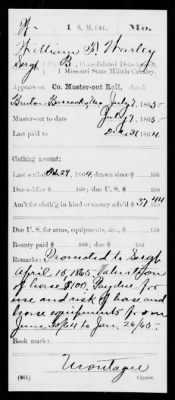 H | 1 S. M. Cav. | Mo.
William P. Hurley
Sergt., Co. B, Consolidated Detachment,
1 Missouri State Militia Cavalry.
Appears on Co. Muster-out Roll, dated
Benton Barracks, Mo., July 7, 1865.
Muster-out to date July 7, 1865.
Last paid to Dec 31, 1864.
Clothing account:
Last settled 1864; drawn since $
Due soldier $ 100; due U. S. $ 100
Am't for cloth'g in kind or money adv'd $ 37 44/100
Due U. S. for arms, equipments, &c., $ 100
Bounty paid $ 100; due $ 100
Remarks: Promoted to Sergt
April 15, 1865. Valuation
of horse $100. Pay due for
use and risk of horse and
horse equipments from
June 30/64 to Jan. 26/65.
Book mark:
Montague
(861) Copyist.